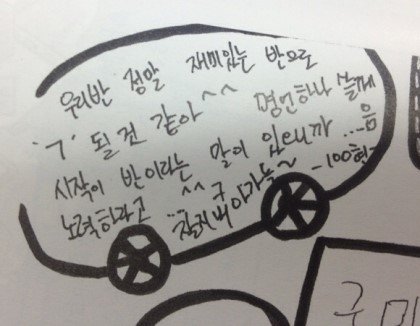 우리반 정말 재미있는 반으로
'7' 될것 같아^^ 명언하나 쓸께
시작이 반이라는 말이 있데니까 ...음
노력하라고 ^^
~100현~
구 미